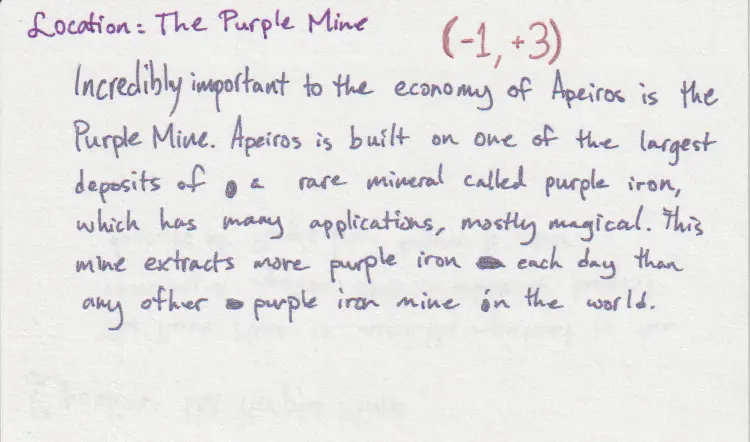 Location: The Purple Mine
(-1, +3)
Incredibly important to the economy of Apeiros is the
Purple Mine. Apeiros is built on one of the largest
deposits of a rare mineral called purple iron,
which has many applications, mostly magical. This
mine extracts more purple iron each day than
any other purple iron mine in the world.